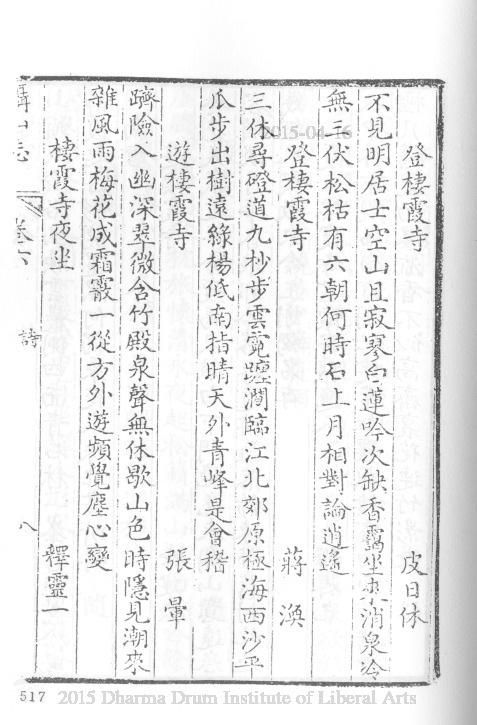 登棲霞寺 皮日休
不見明居士空山且寂寥白蓮吟次缺香靄坐來消泉冷
無三伏松枯有六朝何時石上月相對論逍遙
登棲霞寺 蔣渙
三休尋磴道九杪步雲霓瀍澗臨江北郊原極海西沙平
瓜步出樹遠綠楊低南指晴天外青峰是會稽
遊棲霞寺 張暈
躋險入幽深翠微含竹殿泉聲無休歇山色時隱見潮來
雜風雨梅花成霜霰一從方外遊頻覺塵心變
棲霞寺夜坐 釋靈一
攝山志 卷六 詩 八
2015-04-16
517 2015 Dharma Drum Institute of Liberal Arts